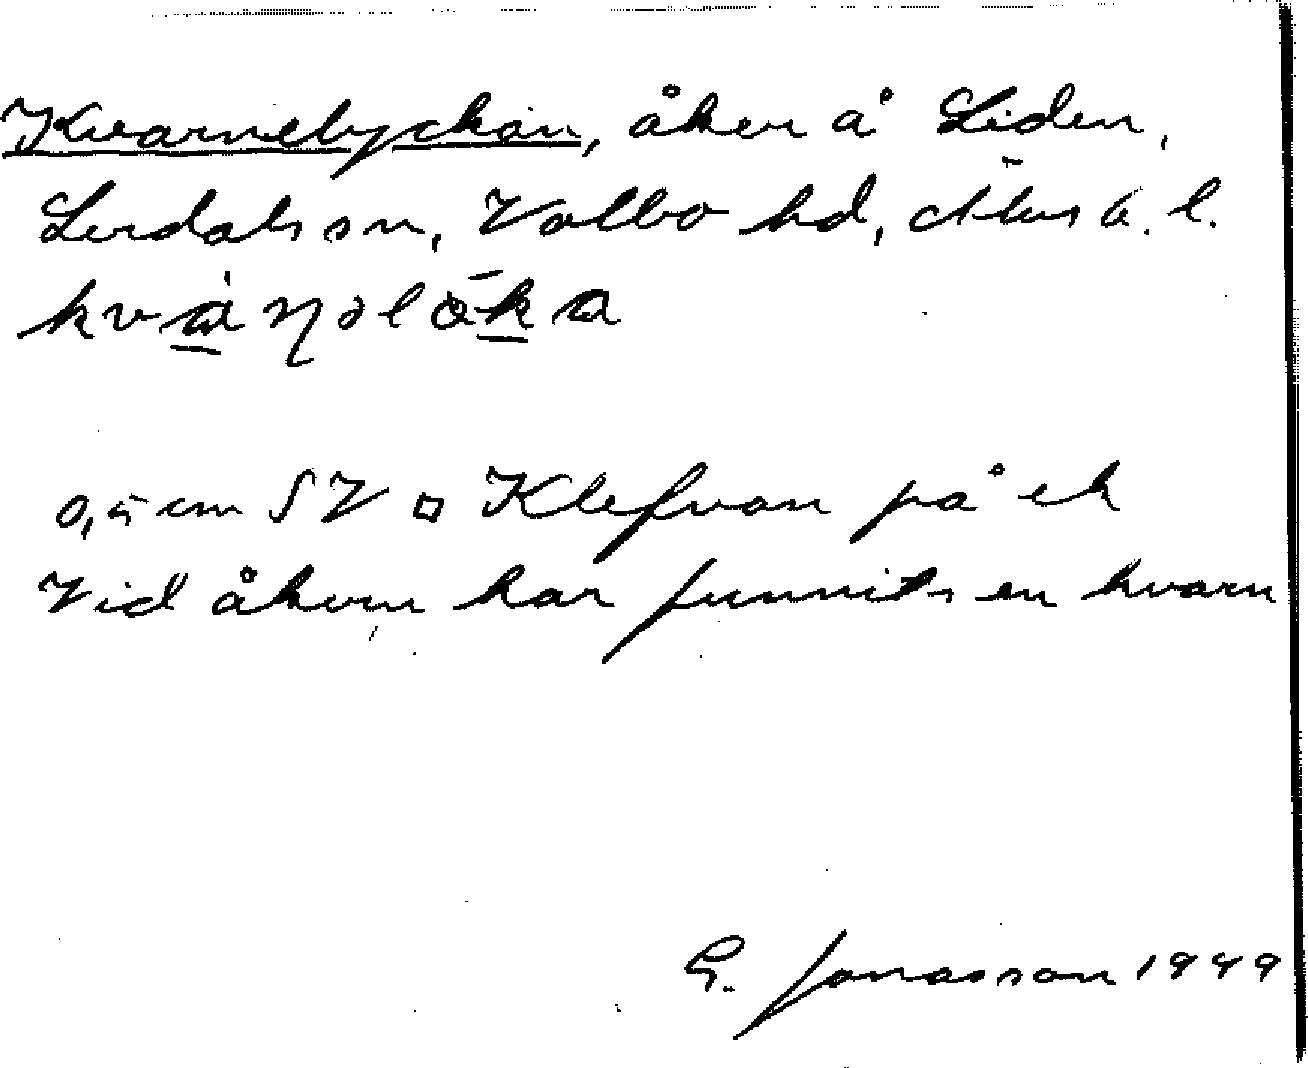 Kvarnelyckan, åker å Liden,
Lerdals sn, Valbo hd, Älvsb. l.
0,5 cm SV □ Klefvan på ek
Vid åkern har funnits en kvarn
G. Jonasson 1949